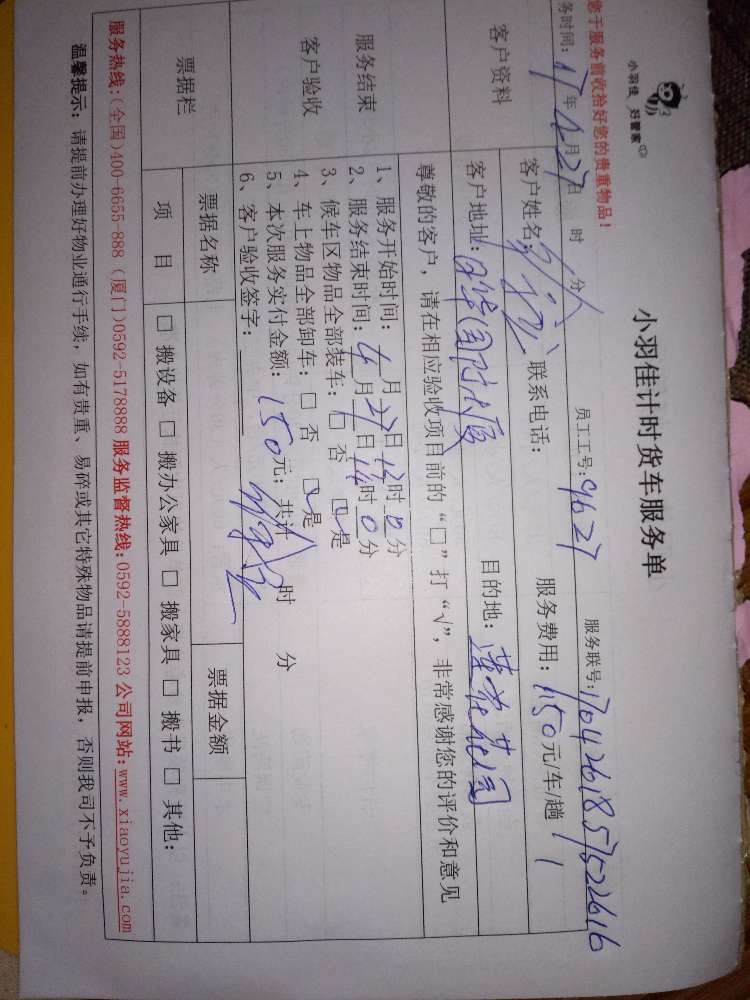 小羽佳 好管家
小羽佳计时货车服务单
您于服务前收拾好您的贵重物品!
务时间: 17年4月27日 时 分 员工工号: 9627 服务联号: 170426185752 2616
客户资料
客户姓名: 联系电话: 服务费用: 150元/车/趟
客户地址: 国际大厦 目的地: 莲花花园
尊敬的客户,请在相应验收项目前的“□”打“√”,非常感谢您的评价和意见
服务结束
客户验收
1、服务开始时间: 月27日12时0分
2、服务结束时间: 4月27日14时0分
3、候车区物品全部装车: □ 否 ☑是
4、车上物品全部卸车: □ 否 ☑是
5、本次服务实付金额: 150元; 共计 时 分
6、客户验收签字:
票据栏
票据名称 票据金额
项 目 □ 搬设备 □ 搬办公家具 □ 搬家具 □ 搬书 □ 其他:
服务热线:(全国)400-6655-888 (厦门)0592-5178888 服务监督热线:0592-5888123 公司网站:www.xiaoyujia.com
温馨提示: 请提前办理好物业通行手续, 如有贵重、易碎或其它特殊物品请提前申报, 否则我司不予负责。